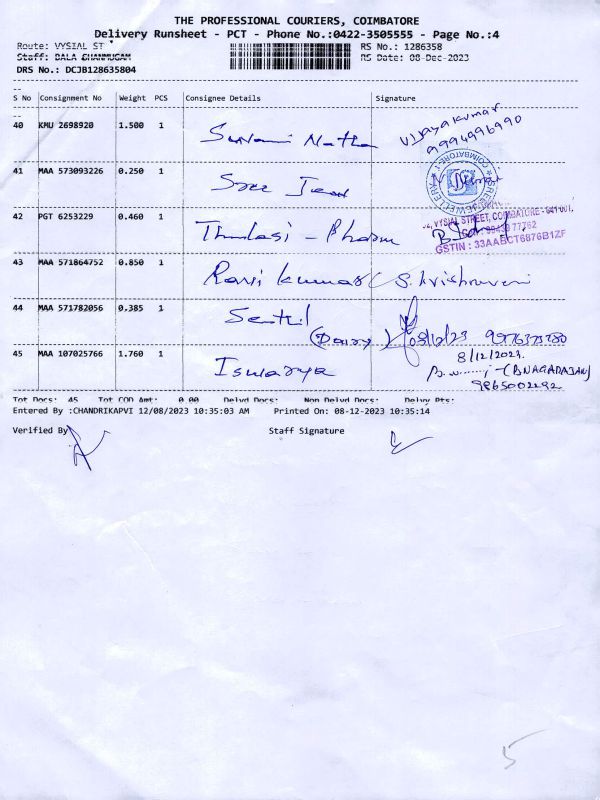 THE PROFESSIONAL COURIERS, COIMBATORE
Delivery Runsheet - PCT - Phone No.:0422-3505555 - Page No.:4
Route: VYSIAL ST
RS No.: 1286358
Staff: BALA SHANMUGAM
RS Date: 08-Dec-2023
DRS No.: DCJB128635804
S No Consignment No Weight PCS Consignee Details Signature
40 KMU 2698920 1.500 1
Vijayakumar
9994996990
41 MAA 573093226 0.250 1 Sree
COIMBATORE-1
42 PGT 6253229 0.460 1 Thulasi - Pharm
VYSIAL STREET, COIMBATORE - 641 001.
GSTIN : 33AABCT6876B1ZF
43 MAA 571864752 0.850 1 Ravi kumar
44 MAA 571782056 0.385 1 Senthil
08/12/23
45 MAA 107025766 1.760 1 Iswarya
8/12/2023.
(B NAGARAJAN)
Tot Docs: 45 Tot COD Amt: 0.00 Delvd Docs: Non Delvd Docs: Delvy Pts:
Entered By :CHANDRIKAPVI 12/08/2023 10:35:03 AM Printed On: 08-12-2023 10:35:14
Verified By Staff Signature
5